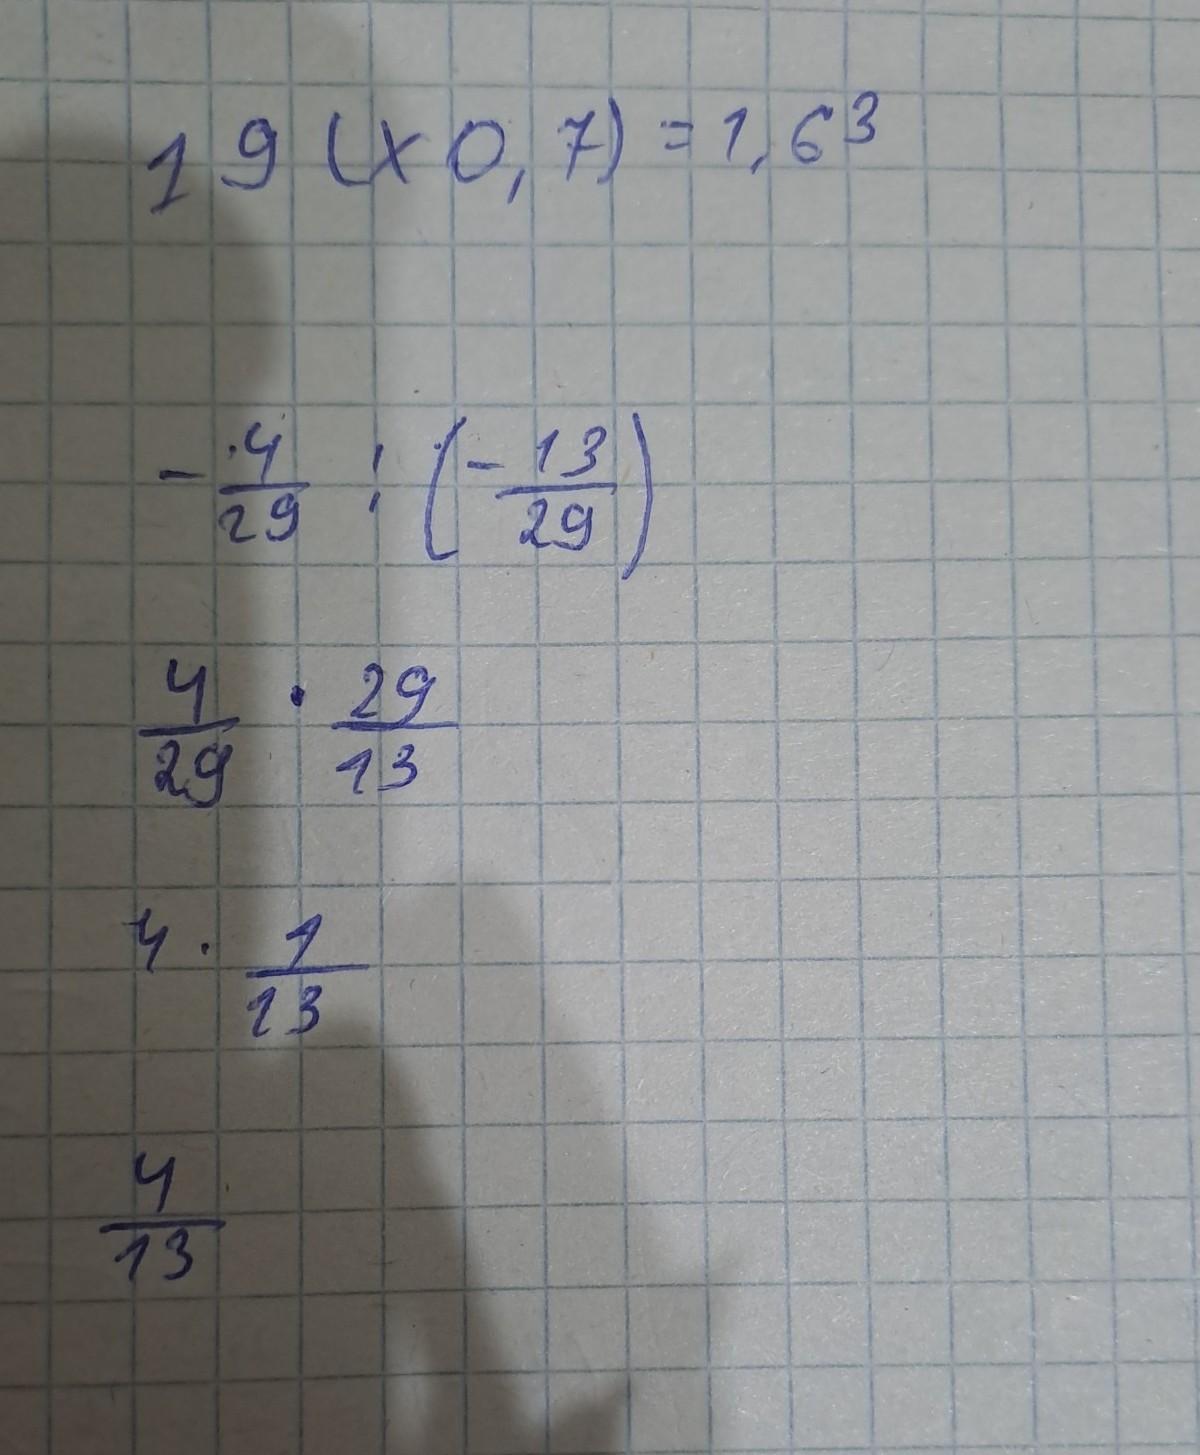 19(x0,7)=1,63
-4/29 : (-13/29)
4/29 · 29/13
4 · 1/13
4/13